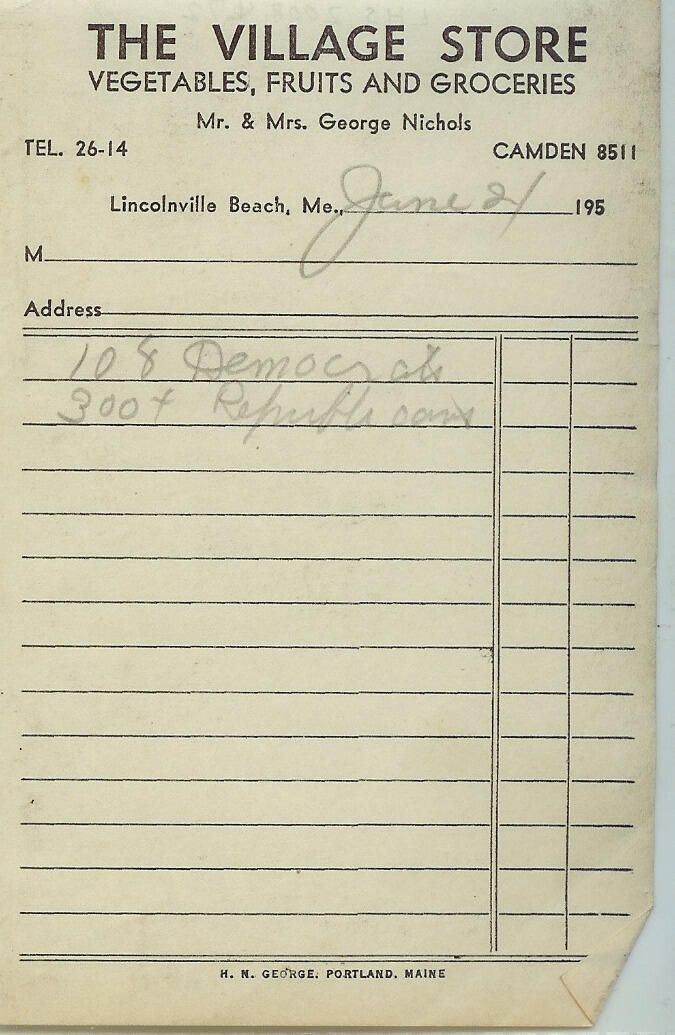 THE VILLAGE STORE
VEGETABLES, FRUITS AND GROCERIES
Mr. & Mrs. George Nichols
TEL. 26-14 CAMDEN 8511
Lincolnville Beach, Me., June 21 195
M
Address
108 Democrats
300+ Republicans
H. N. GEORGE, PORTLAND, MAINE